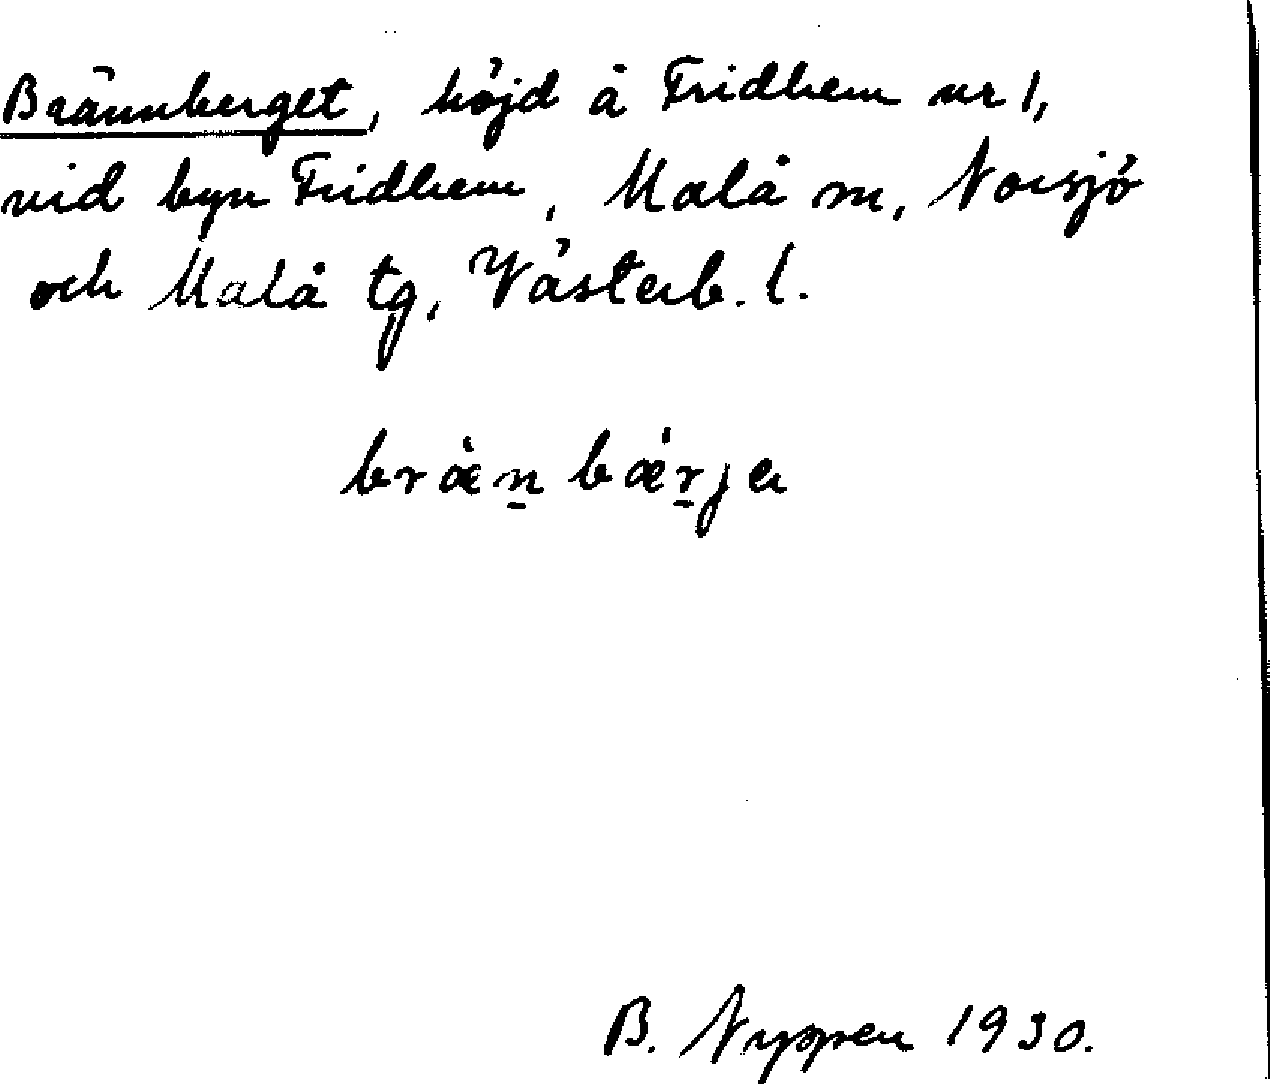 Brännberget, höjd å Fridhem nr 1,
vid byn Fridhem, Malå m, Norsjö
och Malå tg, Västerb. l.
bræ̀n̠ bǽr̠ja
B. Nyppen 1930.